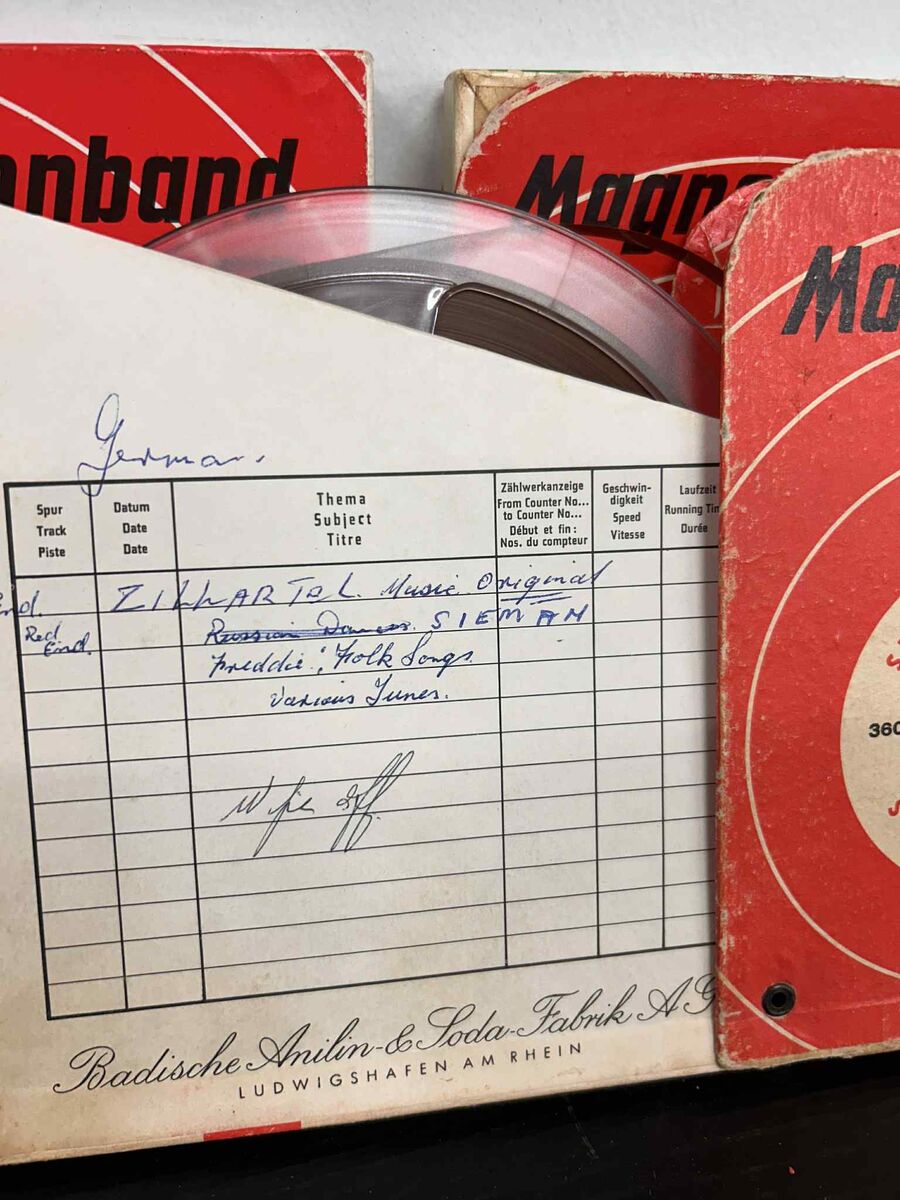 onband
Magne
Ma
German.
Spur
Track
Piste
Datum
Date
Date
Thema
Subject
Titre
Zählwerkanzeige
From Counter No...
to Counter No...
Début et fin:
Nos. du compteur
Geschwin-
digkeit
Speed
Vitesse
Laufzeit
Running Tim
Durée
End. ZILLARTAL. Music Original
Red Russian Dances. SIEMAN
End. Freddie; Folk Songs.
Various Tunes.
Wipe off
360
Badische Anilin- & Soda-Fabrik AG
LUDWIGSHAFEN AM RHEIN